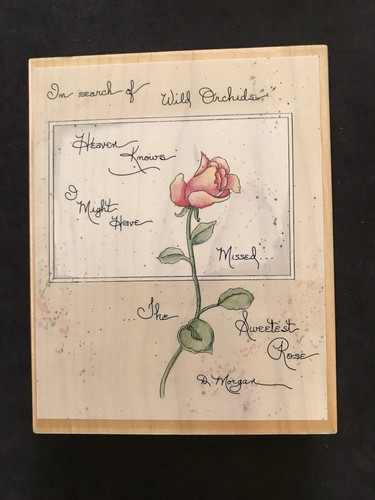 In search of Wild Orchids...
Heaven
Knows
I
Might
Have
Missed...
...The
Sweetest
Rose
D. Morgan